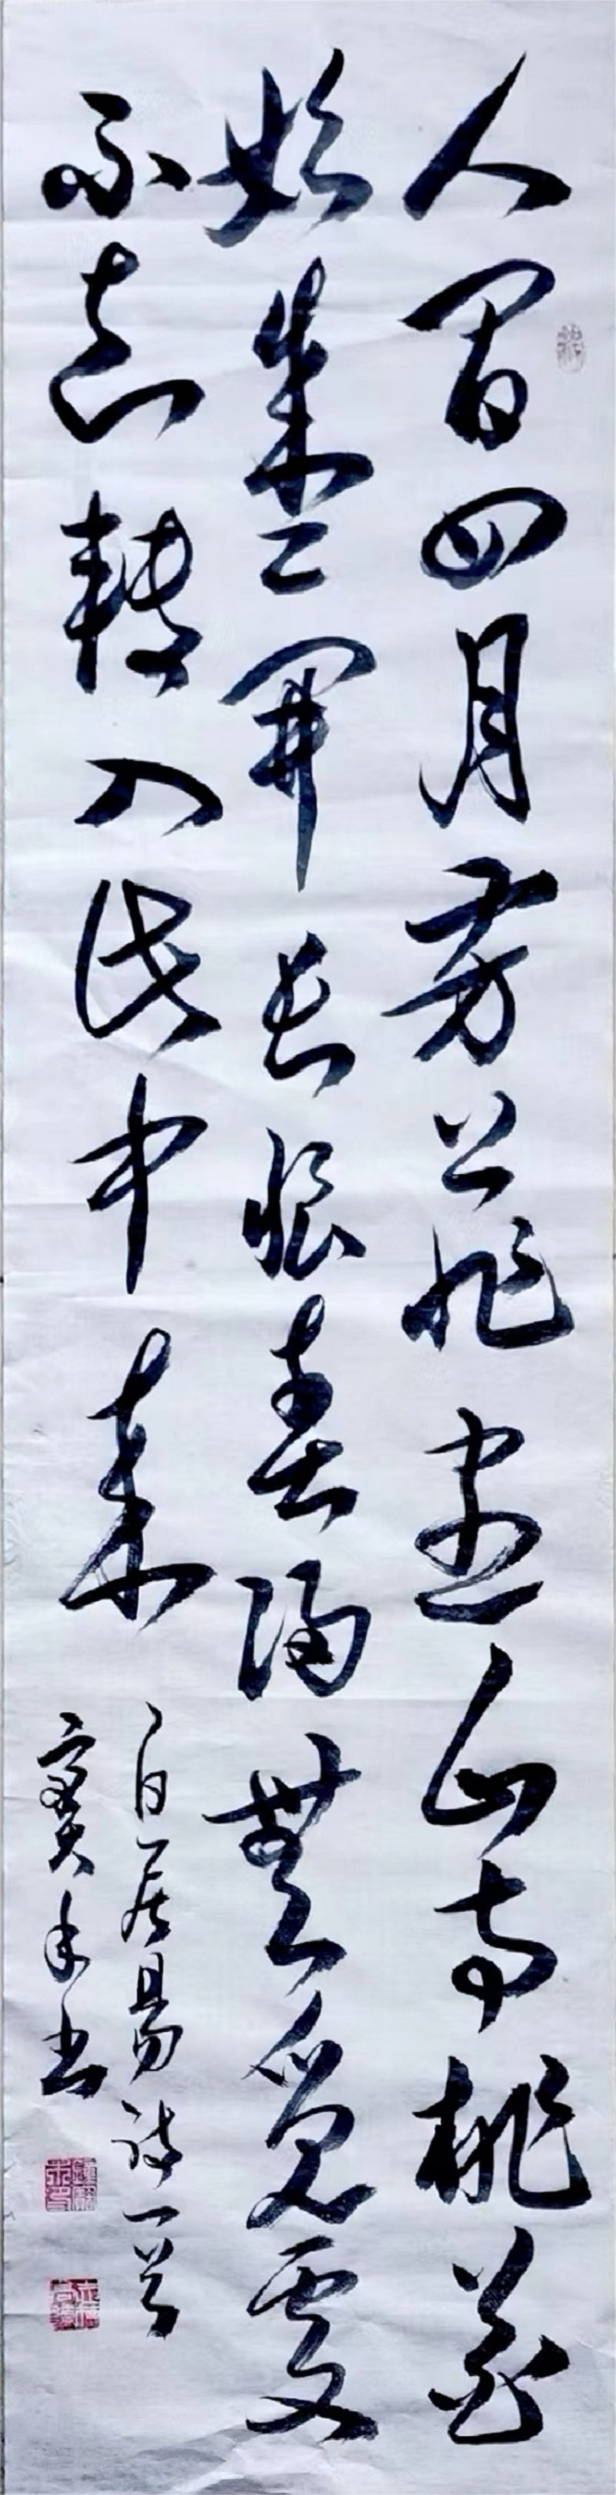 人間四月芳菲盡山寺桃花
始盛開長恨春歸無覓處
不知轉入此中來
白居易詩一首
寶年書